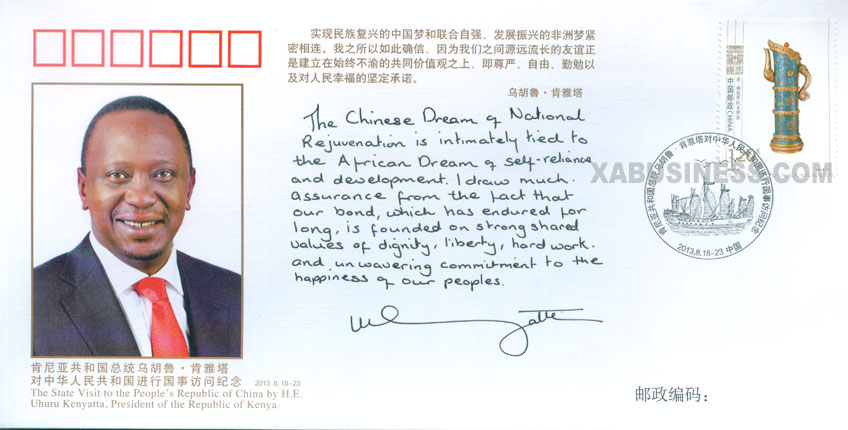 实现民族复兴的中国梦和联合自强、发展振兴的非洲梦紧
密相连。我之所以如此确信，因为我们之间源远流长的友谊正
是建立在始终不渝的共同价值观之上，即尊严、自由、勤勉以
及对人民幸福的坚定承诺。
乌胡鲁·肯雅塔
The Chinese Dream of National
Rejuvenation is intimately tied to
the African Dream of self-reliance
and development. I draw much
assurance from the fact that
our bond, which has endured for
long, is founded on strong shared
values of dignity, liberty, hard work
and unwavering commitment to the
happiness of our peoples.
中国邮政 CHINA
XABUSINESS.COM
肯尼亚共和国总统乌胡鲁·肯雅塔对中华人民共和国进行国事访问纪念
2013.8.18-23 中国
肯尼亚共和国总统乌胡鲁·肯雅塔
对中华人民共和国进行国事访问纪念 2013.8.18-23
The State Visit to the People's Republic of China by H.E.
Uhuru Kenyatta, President of the Republic of Kenya
邮政编码：